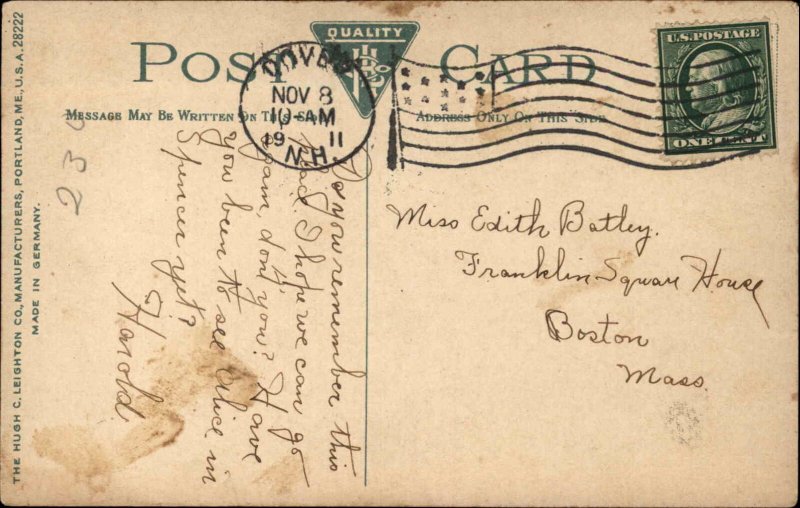 THE HUGH C. LEIGHTON CO., MANUFACTURERS, PORTLAND, ME., U.S.A. 28222
MADE IN GERMANY.
QUALITY
POST CARD
MESSAGE MAY BE WRITTEN ON THIS SIDE
ADDRESS ONLY ON THIS SIDE
DOVER
NOV 8
10-AM
1911
N.H.
U.S. POSTAGE
ONE CENT
230
Do you remember this
place. I hope we can go
again, don't you? Have
you been to see Alice in
Spencer yet?
Harold.
Miss Edith Batley.
Franklin Square House
Boston
Mass.